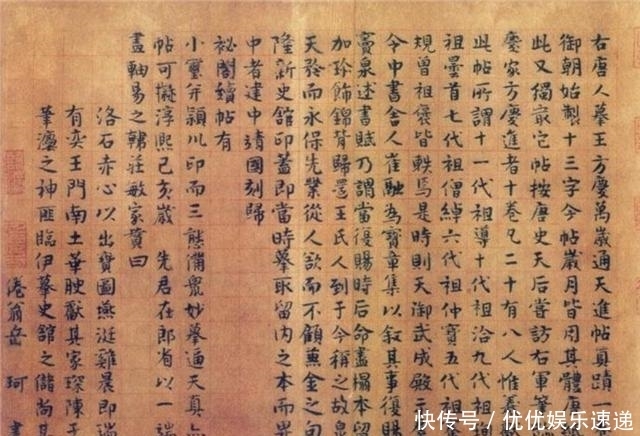 右唐人摹王方慶萬歲通天進帖真蹟一
御朝始製十三字今帖歲月皆用其體唐
此又獨異它帖按唐史天后嘗訪右軍筆
慶家方慶進者十卷凡二十有八人惟羲
此帖所謂十一代祖導十代祖洽九代祖
祖曇首七代祖僧綽六代祖仲寶五代祖
規曾祖褒皆軼焉是時則天御武成殿三
令中書舍人崔融為寶章集以叙其事復賜
竇泉述書賦乃謂當復賜時后命盡榻本留
加珍飾錦背歸還王氏人到于今稱之故泉
天矜而永保先業從人欲而不顧兼金之句
隆新史館印蓋即當時摹取留内之本而
中者建中靖國刻歸
祕閣續帖有
小璽并潁川印而三態備眾妙摹通天真
帖可擬淳熙己亥歲 先君在郎省以一端
盡軸易之韓莊敏家贊曰
洛石赤心以出寶圖燕涎雞晨即
有奕王門南土華腴獻其家琛陳于
筆濂之神匪臨伊摹史館之儲尚其
倦翁岳 珂 書
快传号/优优娱乐速递